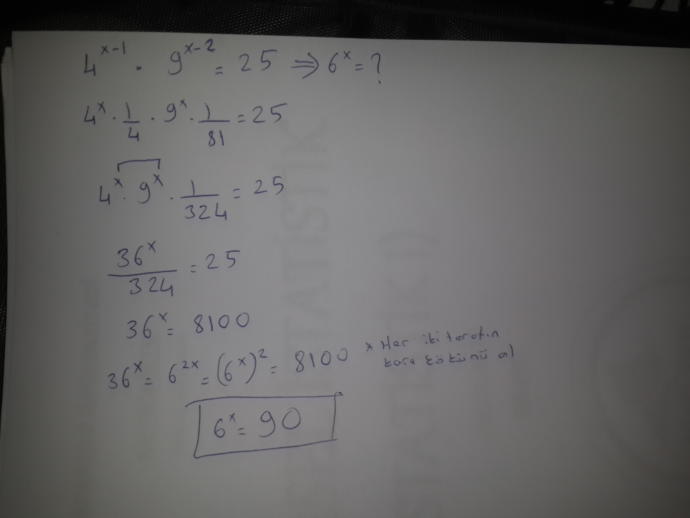 4^(x-1) · 9^(x-2) = 25 ⇒ 6^x = ?
4^x · 1/4 · 9^x · 1/81 = 25
4^x · 9^x · 1/324 = 25
36^x/324 = 25
36^x = 8100
36^x = 6^(2x) = (6^x)^2 = 8100
* Her iki tarafın
kare kökünü al
6^x = 90